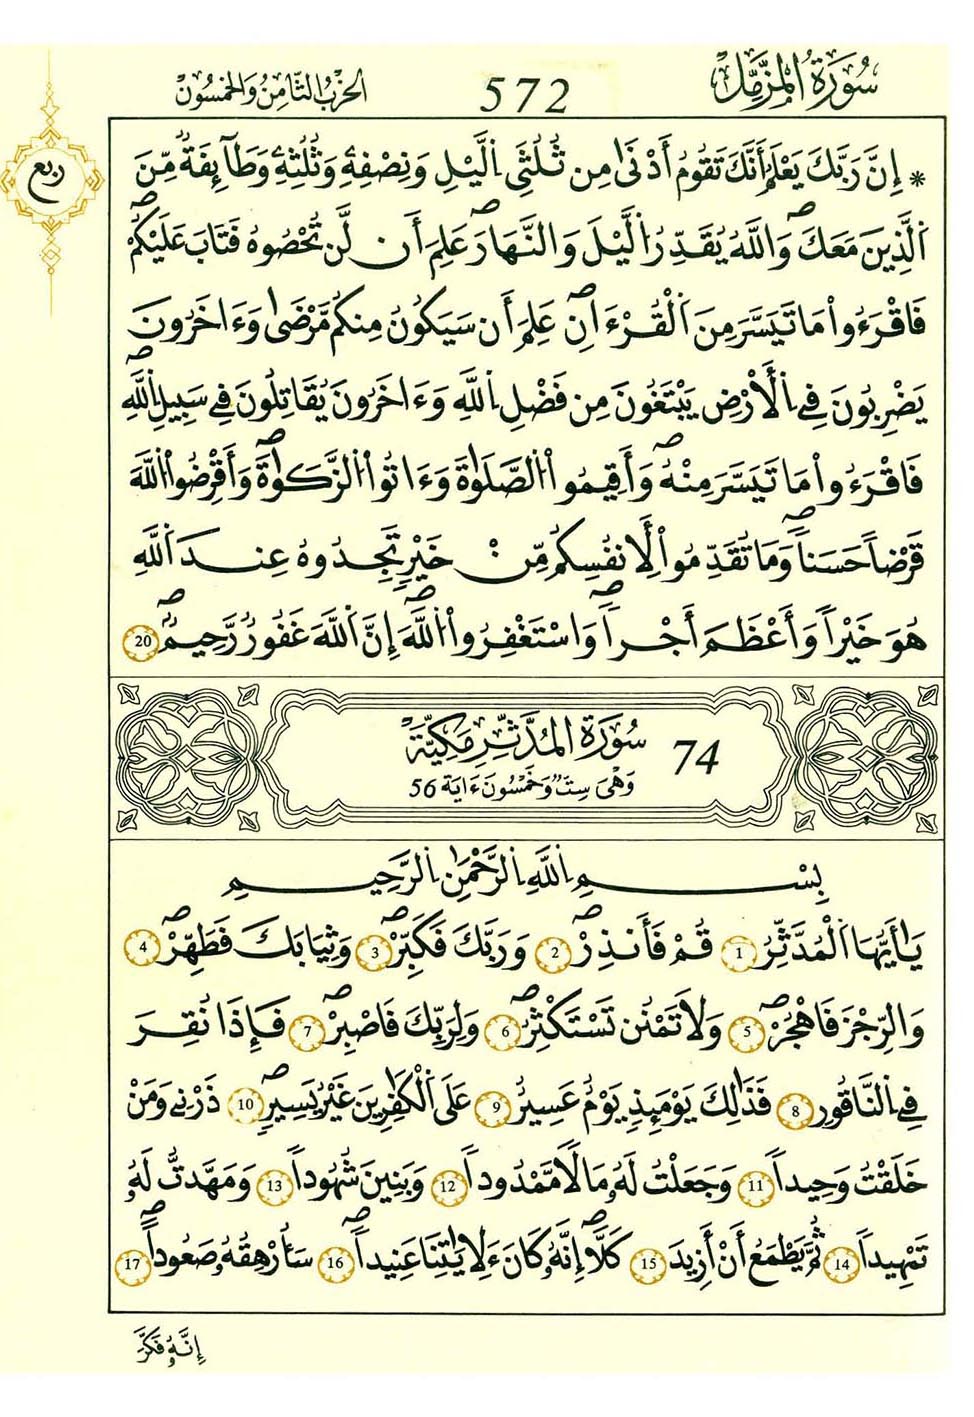 سُورَةُ الْمُزَّمِّلِ 572 الحِزْبُ الثَّامِنُ وَالخَمْسُونَ
ربع
* إِنَّ رَبَّكَ يَعْلَمُ أَنَّكَ تَقُومُ أَدْنَىٰ مِن ثُلُثَيِ اِ۬لَّيْلِ وَنِصْفِهِۦ وَثُلُثِهِۦ وَطَآئِفَةٌ مِّنَ
اَ۬لَّذِينَ مَعَكَۖ وَاللَّهُ يُقَدِّرُ اُ۬لَّيْلَ وَالنَّهَارَۖ عَلِمَ أَن لَّن تُحْصُوهُ فَتَابَ عَلَيْكُمْۖ
فَاقْرَءُواْ مَا تَيَسَّرَ مِنَ اَ۬لْقُرْءَانِۖ عَلِمَ أَن سَيَكُونُ مِنكُم مَّرْضَىٰ وَءَاخَرُونَ
يَضْرِبُونَ فِے اِ۬لَارْضِ يَبْتَغُونَ مِن فَضْلِ اِ۬للَّهِ وَءَاخَرُونَ يُقَاتِلُونَ فِے سَبِيلِ اِ۬للَّهِۖ
فَاقْرَءُواْ مَا تَيَسَّرَ مِنْهُۖ وَأَقِيمُواْ اُ۬لصَّلَوٰةَ وَءَاتُواْ اُ۬لزَّكَوٰةَۖ وَأَقْرِضُواْ اُ۬للَّهَ
قَرْضاً حَسَناًۖ وَمَا تُقَدِّمُواْ لِأَنفُسِكُم مِّنْ خَيْرٍ تَجِدُوهُ عِندَ اَ۬للَّهِ
هُوَ خَيْراً وَأَعْظَمَ أَجْراًۖ وَاسْتَغْفِرُواْ اُ۬للَّهَۖ إِنَّ اَ۬للَّهَ غَفُورٌ رَّحِيمٌۖ 20
74 سُورَةُ الْمُدَّثِّرِ مَكِّيَّة
وَهْيَ سِتٌّ وَخَمْسُونَ ءَايَة 56
بِسْمِ اِ۬للَّهِ اِ۬لرَّحْمَٰنِ اِ۬لرَّحِيمِ
يَٰأَيُّهَا اَ۬لْمُدَّثِّرُ 1 قُمْ فَأَنذِرْۖ 2 وَرَبَّكَ فَكَبِّرْۖ 3 وَثِيَابَكَ فَطَهِّرْۖ 4
وَالرِّجْزَ فَاهْجُرْۖ 5 وَلَا تَمْنُن تَسْتَكْثِرُۖ 6 وَلِرَبِّكَ فَاصْبِرْۖ 7 فَإِذَا نُقِرَ
فِے اِ۬لنَّاقُورِ 8 فَذَٰلِكَ يَوْمَئِذٍ يَوْمٌ عَسِيرٌ 9 عَلَى اَ۬لْكَٰفِرِينَ غَيْرُ يَسِيرٍۖ 10 ذَرْنِے وَمَنْ
خَلَقْتُ وَحِيداً 11 وَجَعَلْتُ لَهُۥ مَالاً مَّمْدُوداً 12 وَبَنِينَ شُهُوداً 13 وَمَهَّدتُّ لَهُۥ
تَمْهِيداً 14 ثُمَّ يَطْمَعُ أَنْ أَزِيدَ 15 كَلَّاۖ إِنَّهُۥ كَانَ ءَلِايَٰتِنَا عَنِيداًۖ 16 سَأُرْهِقُهُۥ صَعُوداًۖ 17
إِنَّهُۥ فَكَّرَ